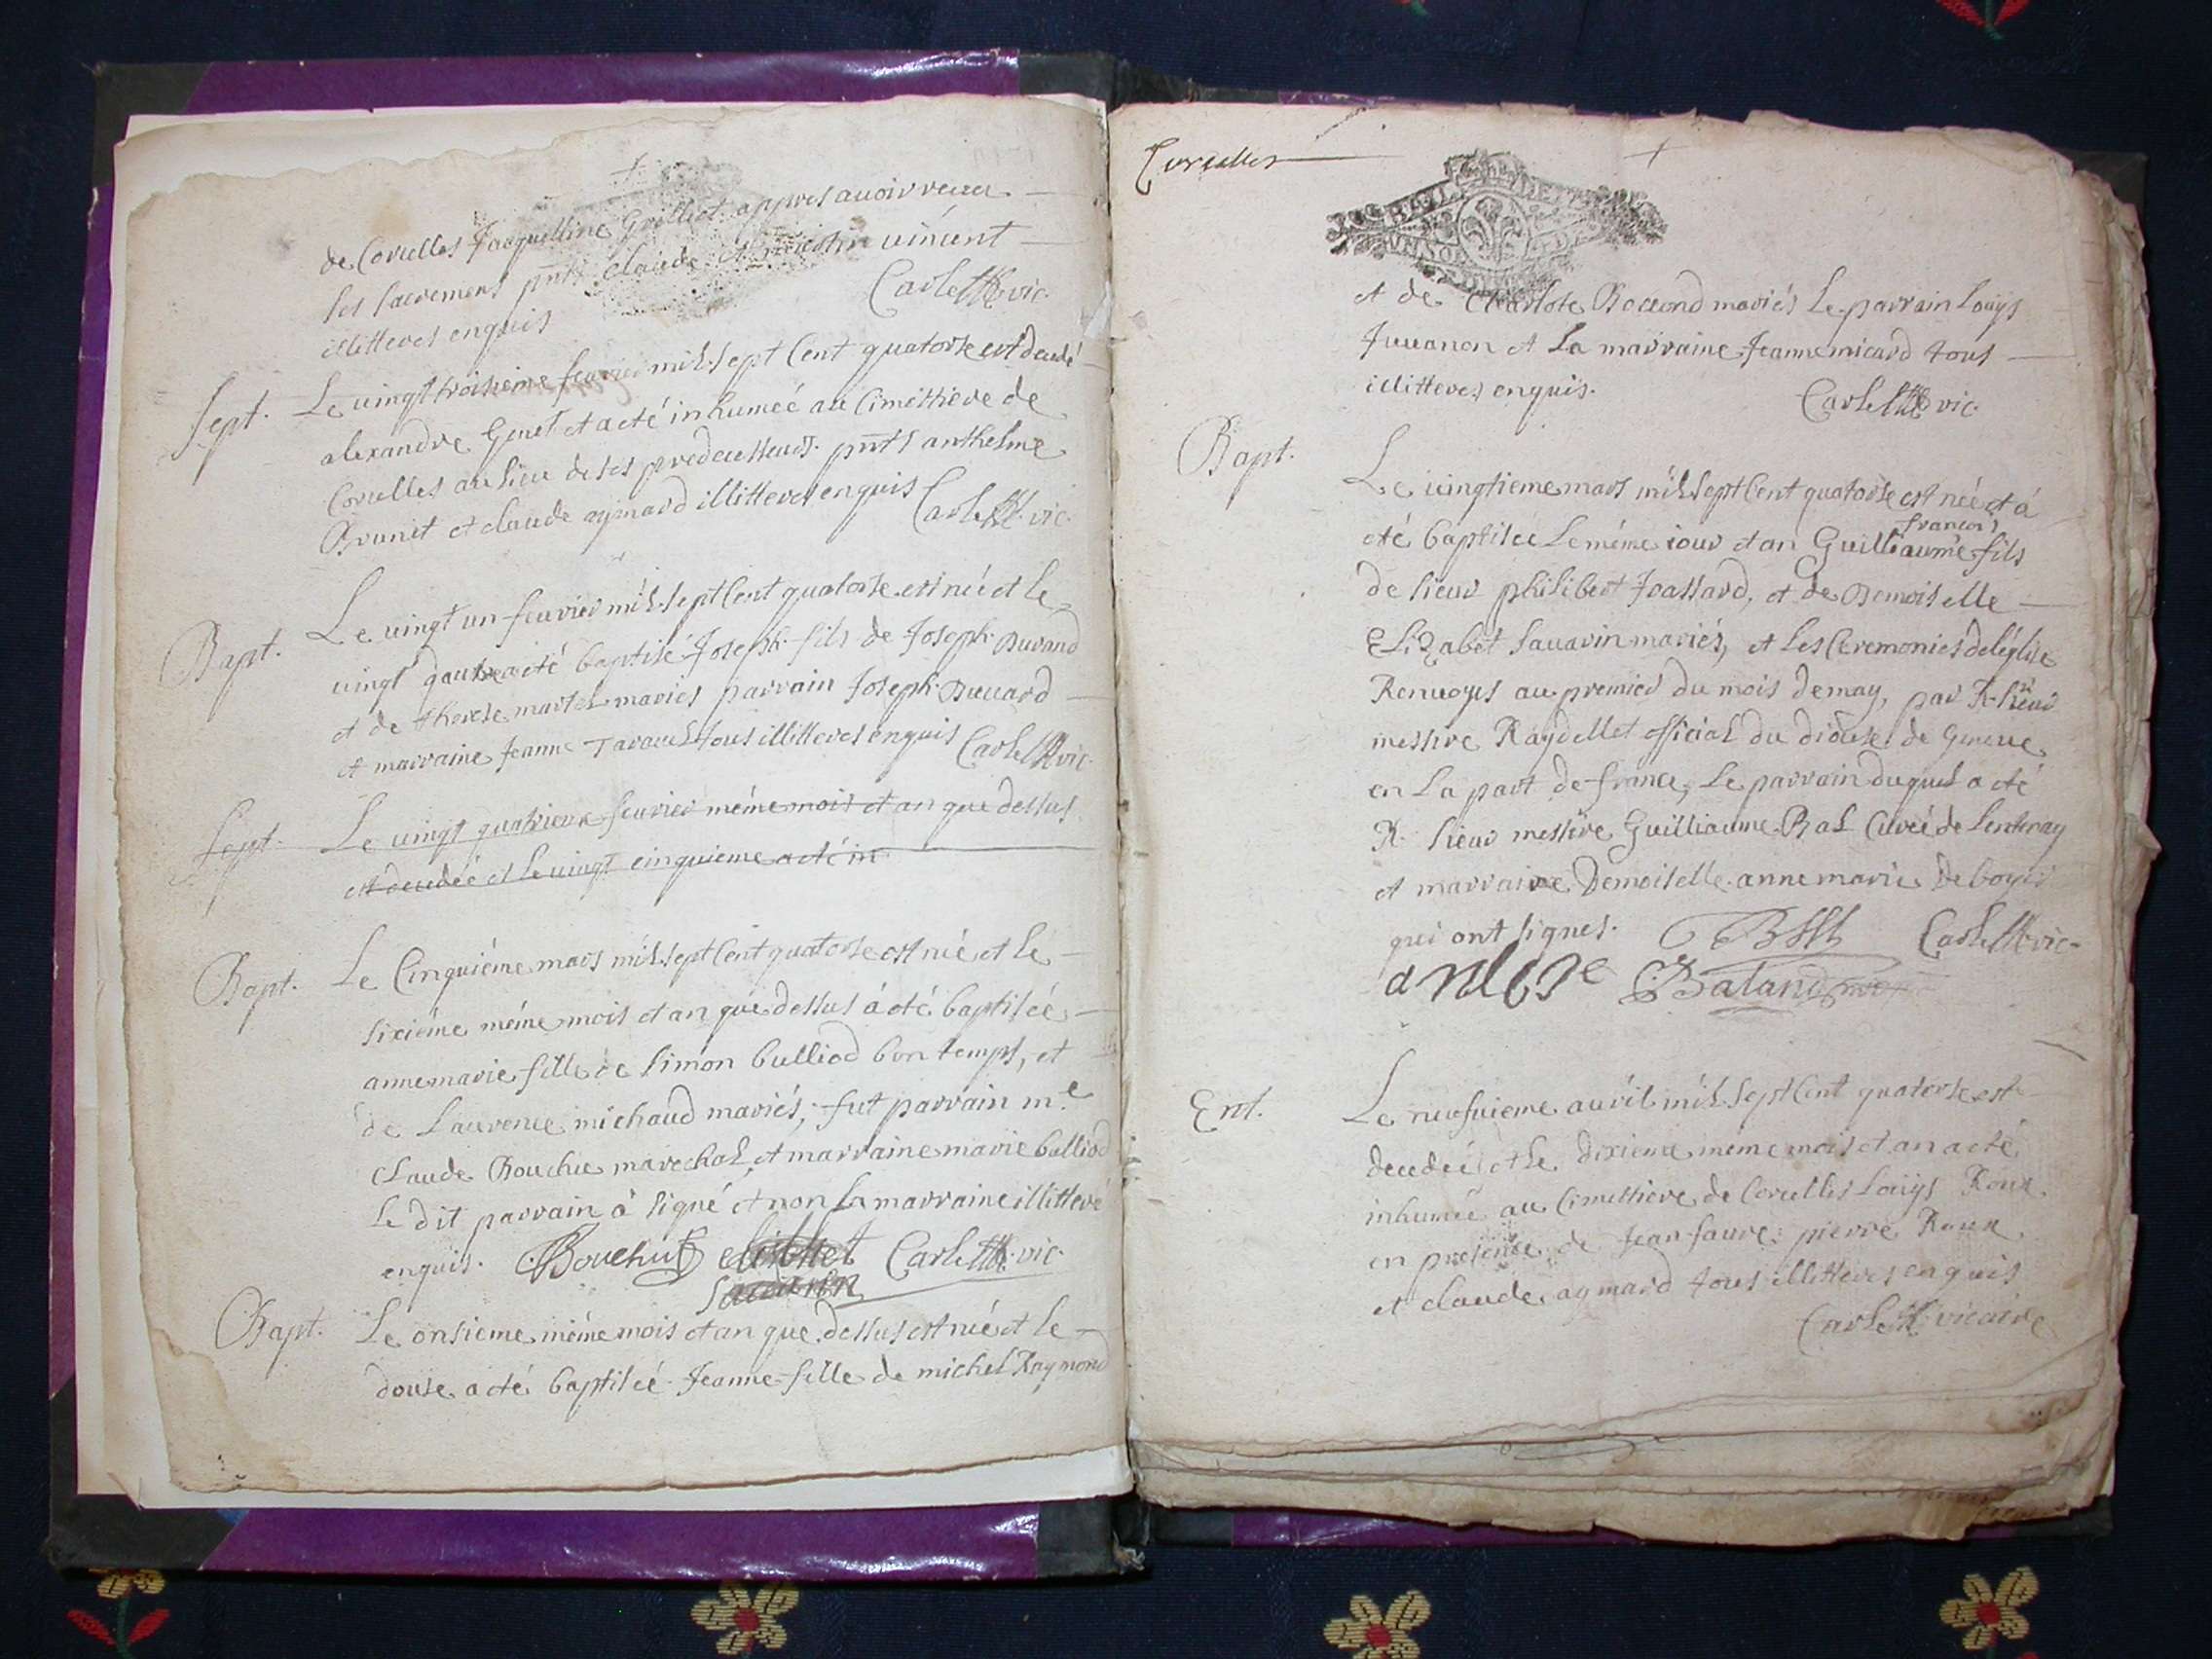 de Corcelles Jacquelline Grilliet appres auoir receu
ses sacremens pnts claude et vincent
illitteres enquis Carlet vic.
Sept. Le uingt troisieme feurier mil sept Cent quatorse est decedé
alexandre Genet et a eté inhumeé au Cimettiere de
Corcelles au lieu de ses predecesseurs. pnts anthelme
Brunet et claude aymard illitteres enquis Carlet vic.
Bapt. Le uingt un feurier mil sept Cent quatorse est née et le
uingt a eté baptisé Joseph fils de Joseph Durand
et de therese martel mariés parrain Joseph Durard
et marraine Jeanne tous illitteres enquis Carlet vic.
Sept. Le uingt quatrieme feurier méme mois et an que dessus
est decedeé et le uingt cinquieme a eté in
Bapt. Le Cinquiéme mars mil sept Cent quatorse est née et le
sixiéme méme mois et an que dessus á eté baptiseé
anne marie fille de Simon bulliod bon temps, et
de Laurence michaud mariés, fut parrain me
Claude Bouchu marechal, et marraine marie bulliod
Le dit parrain á signé et non la marraine illitteré
enquis. Bouchu Carlet vic.
Sauarin
Bapt. Le onsieme méme mois et an que dessus est née et le
douse a eté baptiseé Jeanne fille de michel Raymond
Corcelles
et de Charlote Bocond mariés Le parrain Louys
Juuanon et La marraine Jeanne micard tous
illitteres enquis.
Carlet vic.
Bapt. Le uingtieme mars mil sept Cent quatorse est née et á
francois
eté baptiseé Le méme iour et an Guilliaume fils
de sieur philibert Jrassard, et de Demoiselle
Elizabet Sauarin mariés, et les Ceremonies de léglise
Renuoyes au premier du mois de may, par R. sieur
messire Raydellet official du diocese de Geneue
en La part de france, Le parrain duquel a eté
R. sieur messire Guilliaume Bal Cureé de Lentenay
et marraine Demoiselle anne marie de boyer
qui ont signes. Carlet vic.
Ent. Le neufuieme auril mil sept Cent quatorse est
decedeé et le dixieme méme mois et an a eté
inhumeé au Cimettiere de Corcelles Louys Roux
en presence de Jean faure pierre Roux
et claude aymard tous illitteres enquis
Carlet vicaire